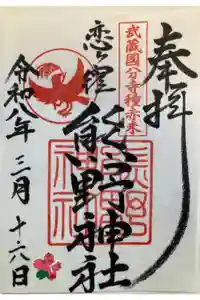 奉拝
武蔵國分寺種赤米
恋ヶ窪
熊野神社
熊野神社
令和八年
三月十六日